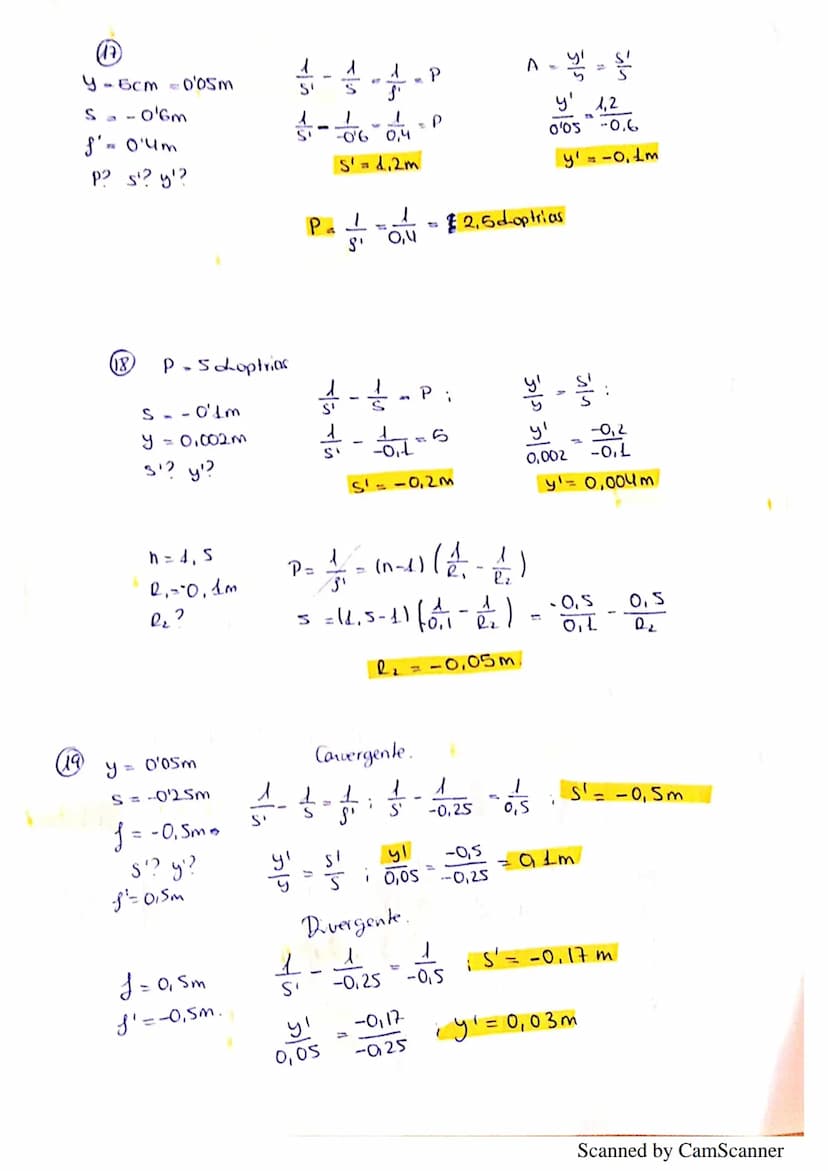 17
y = 5cm = 0'05m
s = -0'6m
f' = 0'4m
P? s'? y'?
1/s' - 1/s = 1/f' = P
1/s' - 1/-0'6 = 1/0,4 = P
s' = 1,2m
Λ = y'/y = s'/s
y'/0'05 = 1,2/-0,6
y' = -0,1m
P = 1/f' = 1/0,4 = 2,5 dioptrias
18 P = 5 dioptrias
s = -0'1m
y = 0,002m
s'? y'?
1/s' - 1/s = P ;
1/s' - 1/-0,1 = 5
s' = -0,2m
y'/y = s'/s ;
y'/0,002 = -0,2/-0,1
y' = 0,004m
n = 1,5
R₁ = -0,1m
R₂?
P = 1/f' = (n-1) (1/R₁ - 1/R₂)
5 = (1,5-1) (1/-0,1 - 1/R₂) = -0,5/0,1 - 0,5/R₂
R₂ = -0,05m
19 y = 0'05m
s = -0'25m
f = -0,5m
s'? y'?
f' = 0,5m
Convergente.
1/s' - 1/s = 1/f' ; 1/s' - 1/-0,25 = 1/0,5 ; s' = -0,5m
y'/y = s'/s ; y'/0,05 = -0,5/-0,25 = 0,1m
Divergente.
f = 0,5m
f' = -0,5m.
1/s' - 1/-0,25 = 1/-0,5 ; s' = -0,17m
y'/0,05 = -0,17/-0,25 ; y' = 0,03m
Scanned by CamScanner